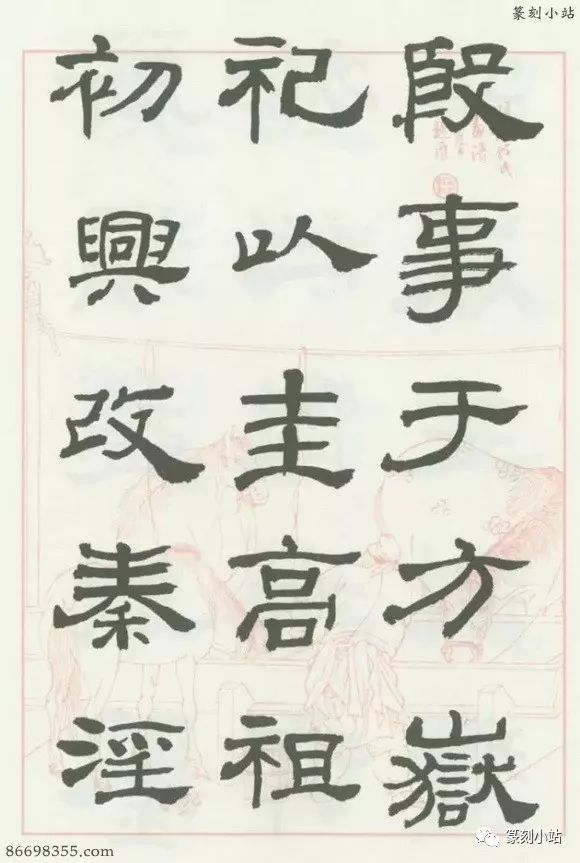 篆刻小站
殷事于方嶽
祀以圭高祖
初興改秦淫
篆刻小站
86698355.com